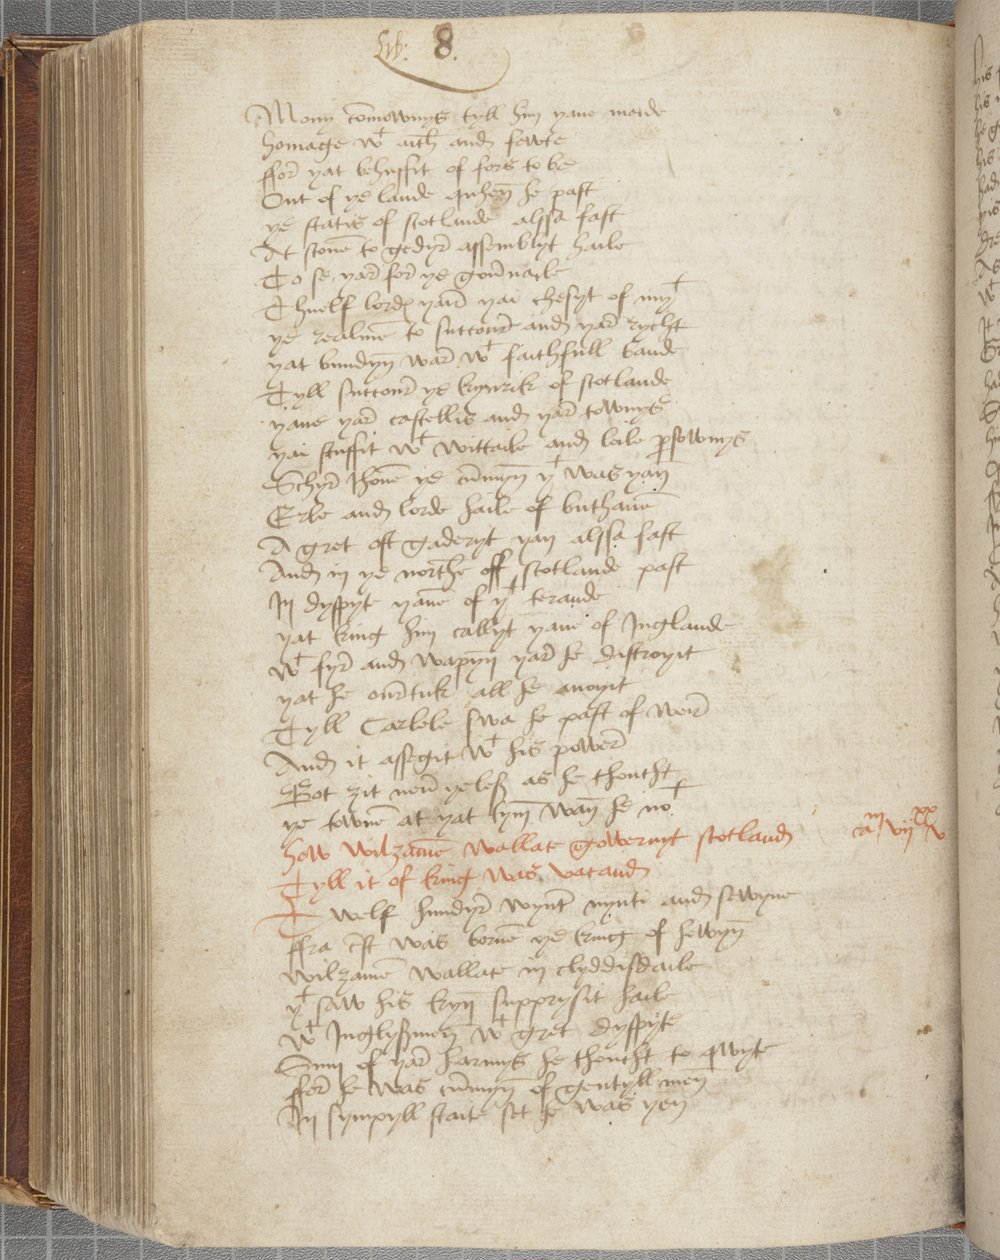 Lib: 8.
Mony comownys tyll hym yane maide
homage wt aith and fewte
ffor yat behuffit of fors to be
Out of ye lande quhen he past
ye statis of scotlande alssa fast
At scone to gedyr assemblyt haile
To se yar for ye gouernaile
Thuelf lordis yair yai chesyt of myt
ye realme to succour and yar rycht
yat bundyn war wt faithfull bande
Tyll succour ye kynrik of scotlande
yane yar castellis and yar townys
yai stuffit wt wittaile and leile psownys
Schyr Jhone ye cumyn yt was yan
Erle and lorde haile of buchane
A gret ost gaderyt yan alssa fast
And in ye northe off scotlande past
In dyspyte yane of yt terande
yat king hym callyt yane of Inglande
wt fyr and wapyn yar he distroyit
yat he ourtuk all he anoyit
Tyll Carlele swa he past of weir
And it assegit wt his power
Bot zit neuer yeless as he thoucht
ye towne at yat tym wan he not
how wilzame wallace gowernyt scotland
Tyll it of king was vacand
Twelf hundyr wyntr nynti and sewyne
ffra crist was borne ye king of hewyn
wilzame wallace in clyddisdaile
yt saw his kyn supprysit haile
wt Inglyssmen wt gret dyspyte
Sum of yar harmys he thoucht to qwyte
ffor he was cumyn of gentyll men
In sympyll staite set he was yen